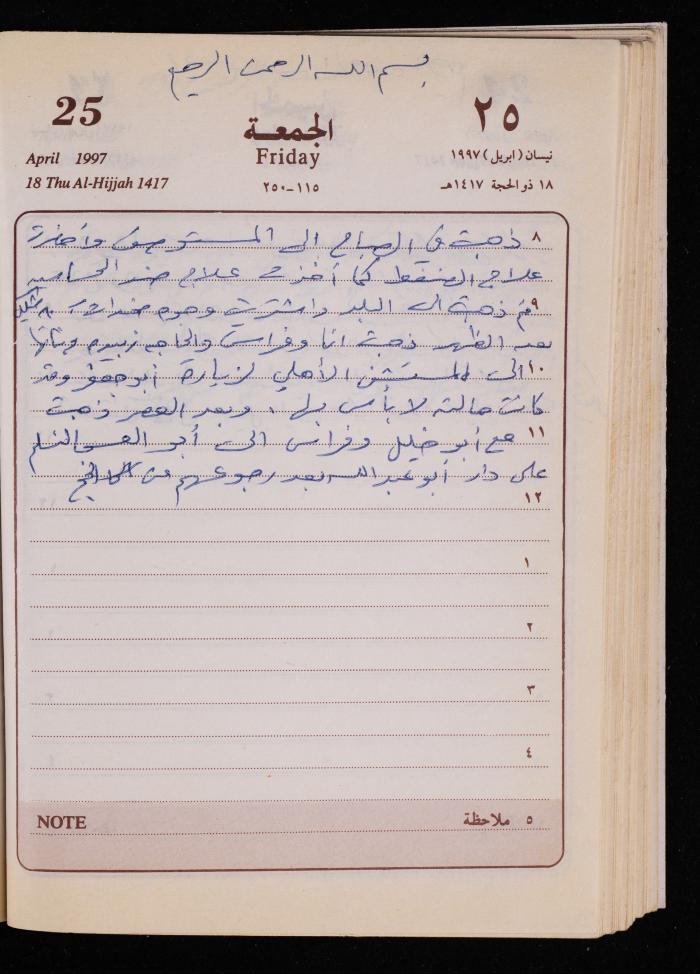 بسم الله الرحمن الرحيم
25
٢٥
الجمعة
Friday
April 1997
نيسان (ابريل) ١٩٩٧
18 Thu Al-Hijjah 1417
١٨ ذو الحجة ١٤١٧هـ
١١٥-٢٥٠
٨ ذهبت في الصباح الى المستوصف وأخذت
علاج الضغط كما أخذت علاج ضد الحساسيه
٩ ثم ذهبت الى البلد واشتريت
بعد الظهر ذهبت انا وفراس والحاجه زبيده
١٠ الى المستشفى الأهلي لزيارة أبو جعفر وقد
كانت حالته لا بأس بها، وبعد العصر ذهبت
١١ مع أبو خليل وفراس الى أبو العبد
على دار أبو عبد الله بعد رجوعهم من الحج
١٢
١
٢
٣
٤
NOTE
٥ ملاحظة